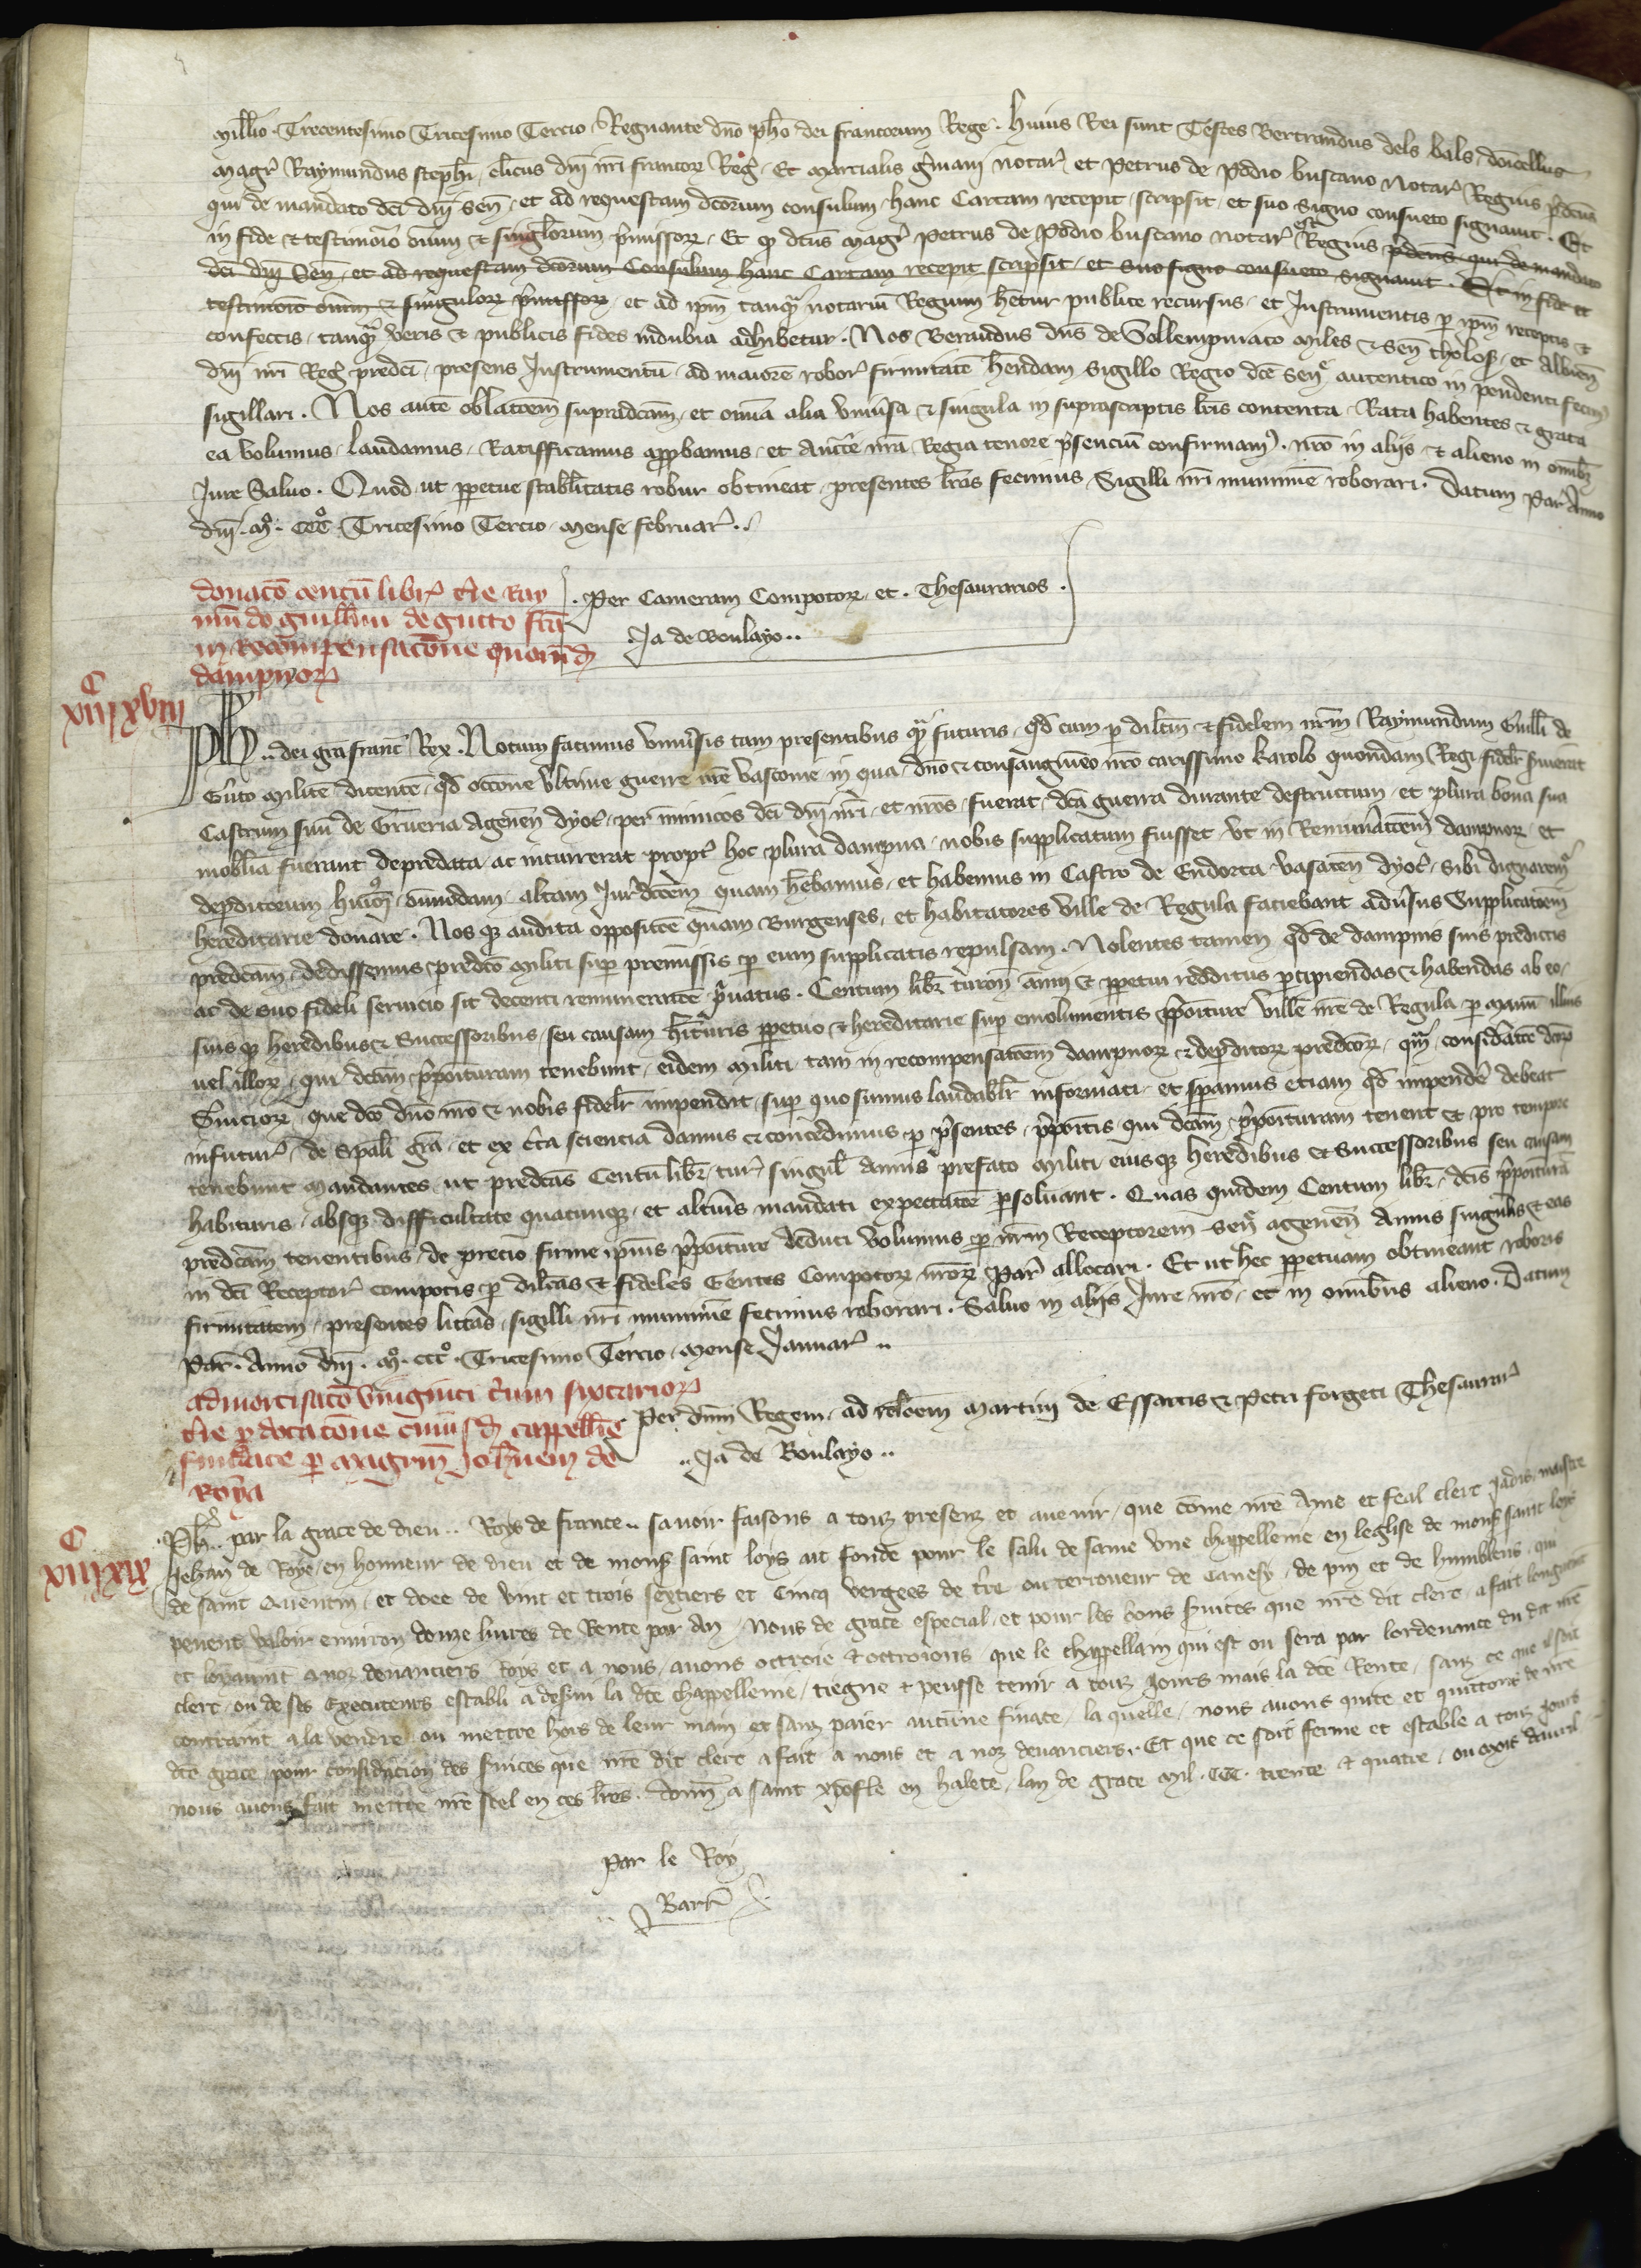 mill̄io Trecentesimo Tricesimo Tercio Regnante dn̄o ph̄o dei francorum Rege. Huius Rei sunt Testes Bertrandus dels bals, domicellus
magr̄ Raymundus steph̄i, cl̄icus dn̄i nr̄i francor̄ Reḡ. Et Marcialis notar̄ et Petrus de Podio buscano Notar̄ Regius p̄dc̄us
qui de mandato dc̄i dn̄i Sen̄. et ad requestam dc̄orum consulum hanc Cartam recepit, scripsit, et suo signo consueto signauit. Et
in fide et testimoīo om̄ium et singlorum p̄missor̄. Et qd dc̄us Magr̄ Petrus de Podio buscano notar̄ est Regius p̄dc̄us qui de mandato
dc̄i dn̄i Sen̄. et ad requestam dc̄orum Consulum hanc Cartam recepit scripsit, et suo signo consueto signauit. Et in fide et
testimoīo om̄ium et singulor̄ p̄missor̄, et ad ip̄m tanq̄ notariū Regium h̄etur publice recursus, et Instrumentis p ip̄m receptis et
confectis, tanq̄ veris et publicis fides indubia adhibetur. Nos Berandus dn̄s de Sollempniaco Miles et Sen̄ Tholos̄ et Albien̄
dn̄i nr̄i Reḡ predc̄i, presens Instrumentū ad maiorē robor̄ firmitatē h̄endam Sigillo Regio dc̄e sen̄ autentico in pendenti fecim⁹
sigillari. Nos autē oblac̄oem supradc̄am, et om̄ia alia vniūsa et singula in suprascriptis lr̄is contenta, Rata habentes et grata
ea volumus, laudamus, Ratifficamus, appbamus, et auctē nr̄a Regia tenore p̄sencium confirmam⁹. nr̄o in aliis et alieno in omib̄
Iure Saluo. Quod ut ppetue stabilitatis robur obtineat, presentes lr̄as fecimus, Sigilli nr̄i munimē roborari. Datum Par̄ Anno
dn̄i. Mº. CCCº. Tricesimo Tercio, Mense Februar̄.
donacō centū libr̄ tr̄e Ray
mūdo Guill̄mi de gutto fcā
in recompensacōne quorūd̄
dampnor̄
. Per Cameram Compotor̄ et. Thesaurarios.
Ja de Boulayo..
C
xiiij xviij
Ph.. dei grā francˀ Rex. Notum facimus vniūsis tam presentibus q̄ futuris, qd cum p dilc̄m et fidelem nr̄m Raymundum Guill̄i de
Guto militē dicentē, qd occōne vltime guerre nr̄e vasconie in qua dn̄o et consanguineo nr̄o carissimo karolo quondam Regi fidelr̄ s̄uierat
Castrum suū de Grueria Agenen̄ dyoc̄ per inimicos dc̄i dn̄i nr̄i, et nr̄os, fuerat, dc̄a guerra durante destructum, et plura bona sua
mobilia fuerant depredata, ac incurrerat propt̄ hoc plura dampna, nobis supplicatum fuisset vt in Remuneracc̄em dampnor̄ et
depditorum omīmodam altam Iurisdicc̄oem quam h̄ebamus, et habemus in Castro de Endorta vasaten̄ dyoc̄ sibi dignarem⁹
hereditarie donare. Nos q̄ audita opposicōe quam Burgenses, et habitatores ville de Regula faciebant adūsus Supplicac̄oem
predc̄am, dedissemus, predc̄o militi sup premissis p eum supplicatis repulsam. Nolentes tamen qd de dampnis suis predictis
ac de suo fideli seruicio sit decenti remuneracōe p̄uatus. Centum libr̄ turon̄ annui et ppetui redditus pcipiendas et habendas ab eo,
suis q̄ heredibus et Successoribus, seu causam h̄ituris ppetuo et hereditarie sup emolumentis p̄poiture ville nr̄e de Regula p manū illius
uel illor̄, qui dc̄am p̄poituram tenebunt, eidem militi tam in recompensacc̄em dampnor̄ et depditor̄ predc̄or̄, q̄ considacōe dc̄or̄
s̄uicior̄, que dc̄o dn̄o nr̄o et nobis fidelr̄ impendit, sup quo sumus laudablr̄ informati et spamus etiam qd impendē debeat
in futur̄, de sp̄ali grā, et ex c̄ta sciencia damus et concedimus p p̄sentes, p̄poitis qui dc̄am p̄poituram tenent et pro tempore
tenebunt mandantes, ut predc̄as Centū libr̄ tur̄ singul̄ annis prefato militi eiusq̄ heredibus et Successoribus seu causam
habituris, absq̄ difficultate quacunq̄ et altius mandati expectacōe psoluant. Quas quidem Centum libr̄ dc̄is p̄poiturā
predc̄am tenentibus, de precio firme ip̄ius p̄poiture deduci volumus p nr̄m Receptorem Sen̄ agenen̄ Annis singulis et eas
in dc̄i Receptor̄ compotis p dilc̄os et fideles Gentes Compotor̄ nr̄or̄ Par̄ allocari. Et ut hec ppetuam obtineant roboris
firmitatem, presentes litt̄as, sigilli nr̄i munimē fecimus roborari. Saluo in aliis Iure nr̄o, et in omibus alieno. Datum
Par̄. Anno dn̄i. Mº. CCCº. Tricesimo Tercio, Mense Januar̄..
admortisacō viginti trium sextarior̄
tr̄e p dotacōne cuiusd̄ cappell̄ie
fundate p magr̄m Joh̄nem de
Roya
Per dn̄m Regem, ad rel̄oem Martini de Essartis et Petri forgeti Thesaurar̄
..Ja de Boulayo..
C
xiiij xix
Ph.. par la grace de dieu.. Roys de france.. sauoir faisons a touz presenz et auenir, que cōme nr̄e Ame et feal clerc Jadis, maistre
Jehan de Roye, en honneur de dieu et de mons̄ saint loys ait fonde pour le salu de same vne chappellenie en leglise de mons̄ saint loys
de saint Quentin, et doee de vint et trois sextiers et Cinq vergees de tr̄e ou terroueur de Canesy, de pin et de humblens, qui
peuent valoir enuiron douze liures de Rente par an, Nous de grace especial, et pour les bons s̄uices que nr̄e dit clerc, a fait longuement
et loyaumt̄ a noz deuanciers Roys et a nous, auons octroie et octroions, que le chappellain qui est ou sera par lordenance du dit nr̄e
clerc, ou de ses executeurs establi a des̄uir la dc̄e chappellenie, tiegne et peusse tenir a touz jours mais la dc̄e Rente, sanz ce que il soit
contraint a la vendre ou mettre hors de leur main et sanz paier aucune finace, la quelle, nous auons quite et quittons de nr̄e
dc̄e grace, pour considr̄acion des s̄uices que nr̄e dit clerc a fait a nous et a noz deuanciers. Et que ce soit ferme et estable a touz jours
nous auons fait mettre nr̄e scel en ces lr̄es. Donn̄ a saint xpofle en halete, lan de grace Mil. CCC. trente et quatre, ou mois dauril
Par le Roy
Barr̄